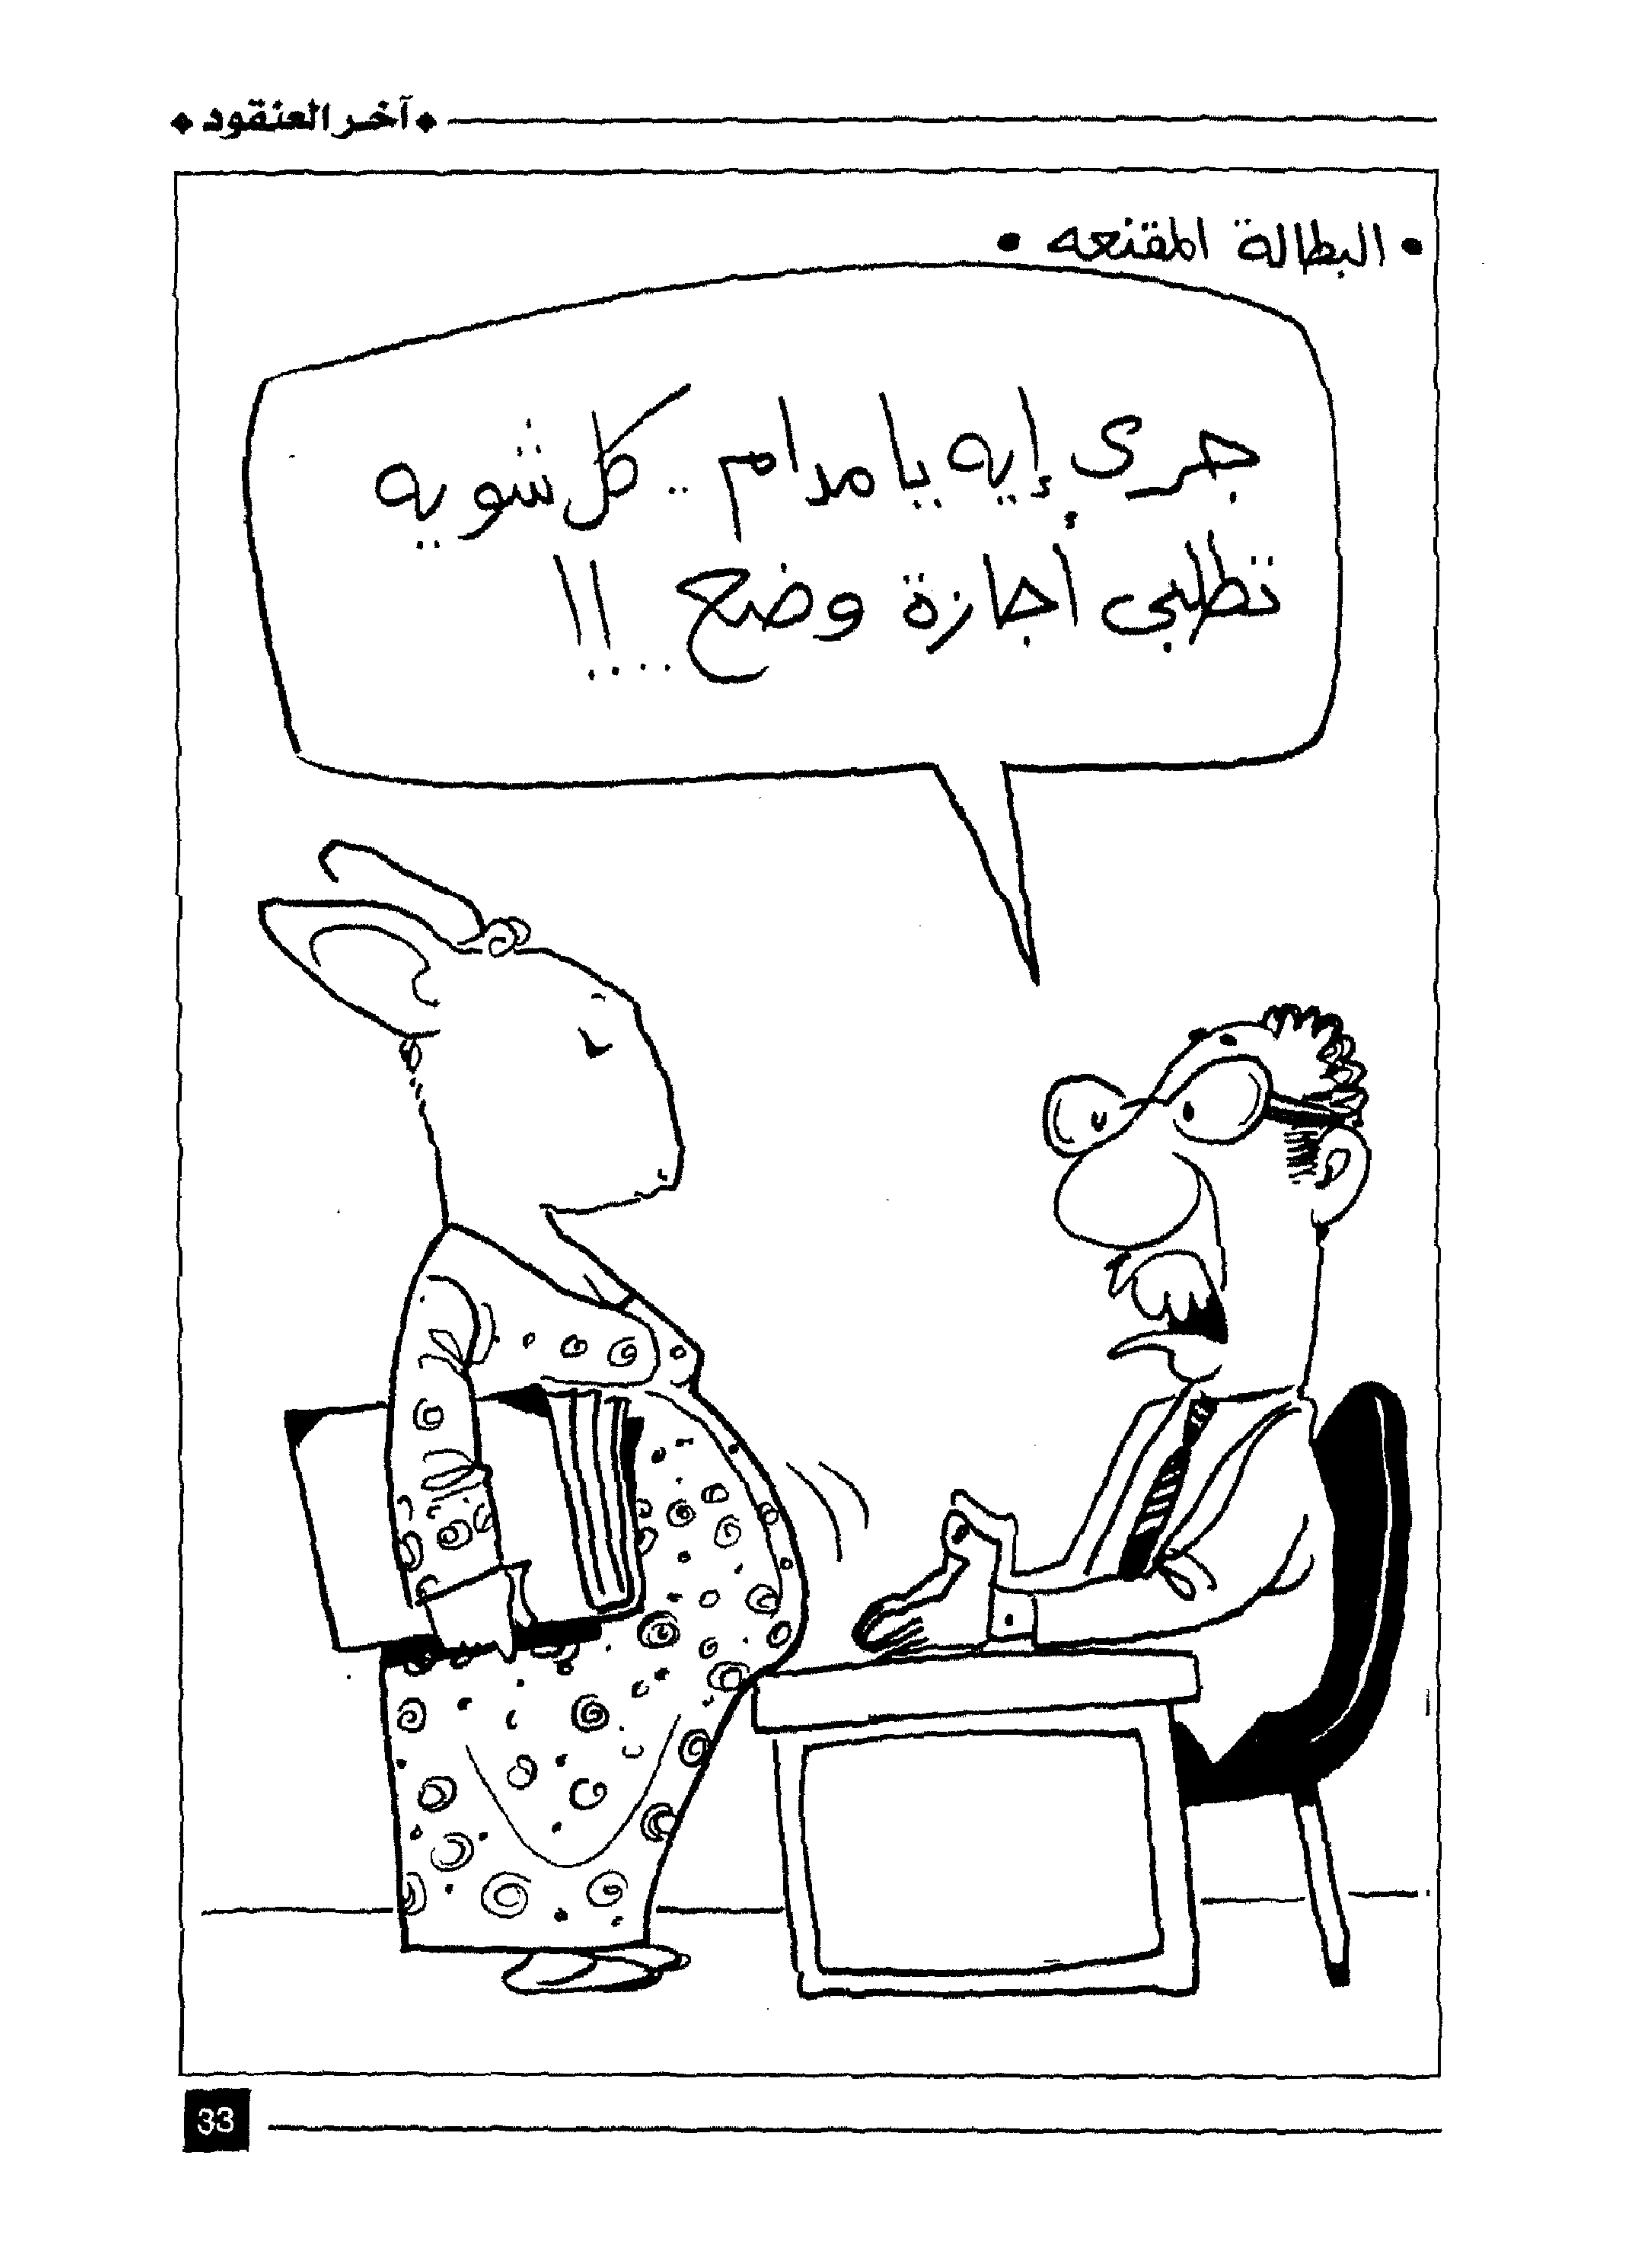 • آخر العنقود •
• البطالة المقنعه •
جرى إيه يا مدام .. كل شويه
تطلبى أجازة وضع ....!!
33